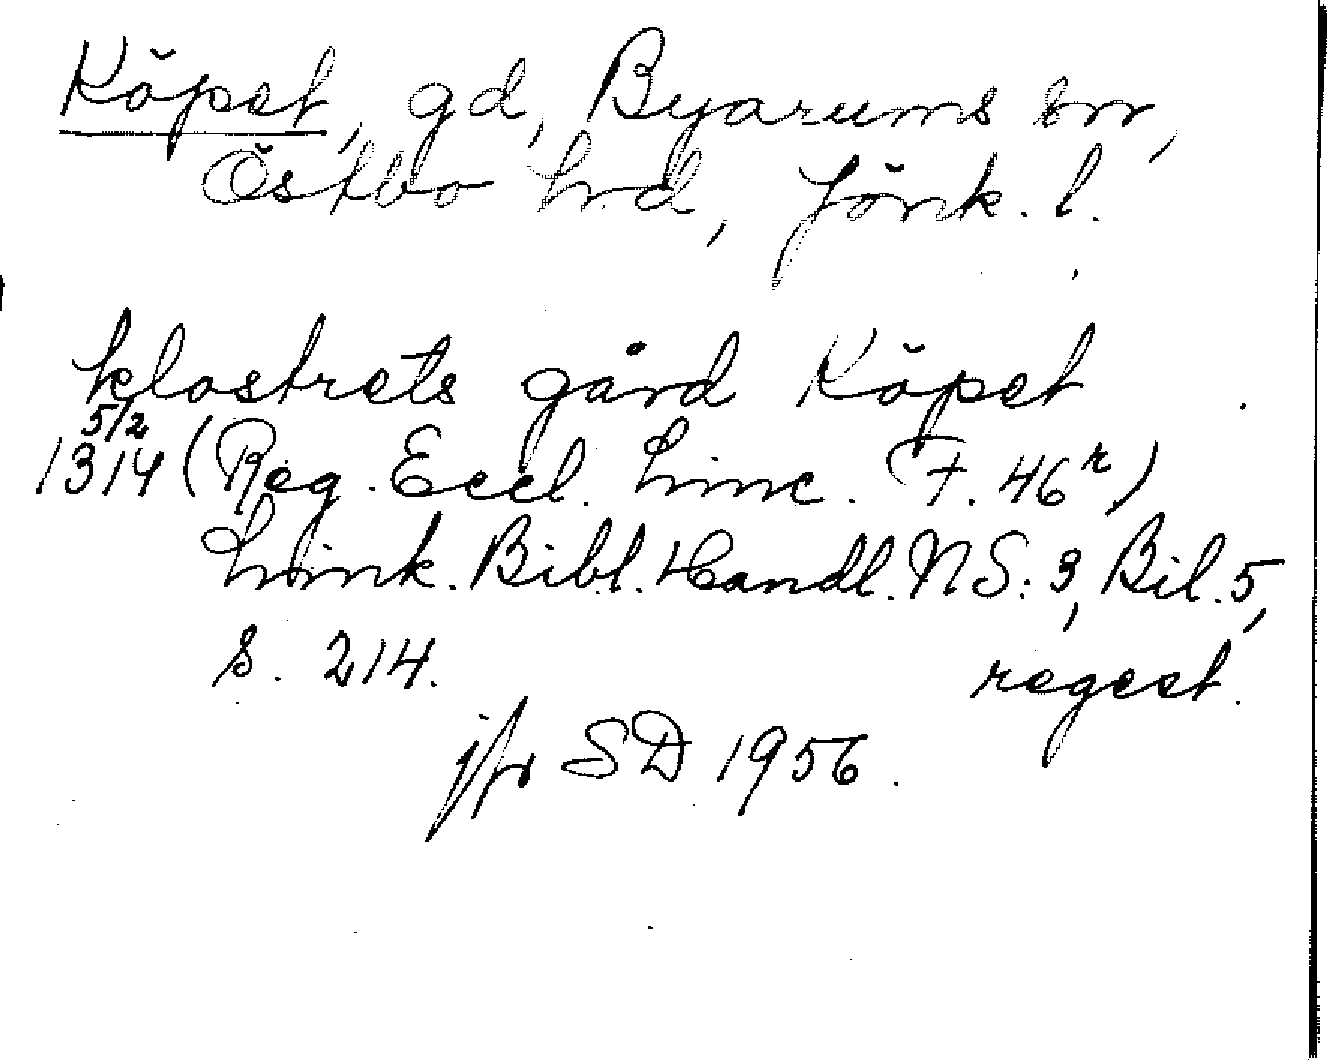 Köpet, gd, Byarums sn,
Östbo hrd, Jönk. l.
klostrets gård Köpet
5/2
1314 (Reg. Eccl. Linc. F. 46r)
Link. Bibl. Handl. NS: 3, Bil. 5,
s. 214. regest.
jfr SD 1956.